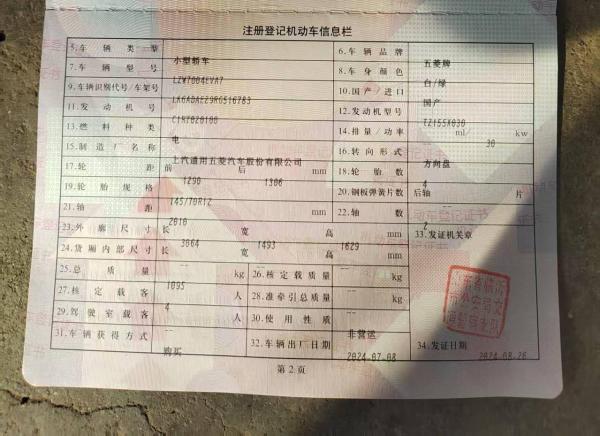 注册登记机动车信息栏
5.车辆类型 小型轿车 6.车辆品牌 五菱牌
7.车辆型号 LZW7004EVA7 8.车身颜色 白/绿
9.车辆识别代号/车架号 LK6ADAE29RG516783 10.国产/进口 国产
11.发动机号 12.发动机型号 TZ155X030
13.燃料种类 电 14.排量/功率 ml 30 kw
15.制造厂名称 上汽通用五菱汽车股份有限公司 16.转向形式 方向盘
17.轮距 前 1290 后 1306 mm 18.轮胎数 4
19.轮胎规格 145/70R12 20.钢板弹簧片数 后轴 -- 片
21.轴距 2010 mm 22.轴数 2
23.外廓尺寸 长 3064 宽 1493 高 1629 mm 33.发证机关章
24.货厢内部尺寸 长 -- 宽 -- 高 -- mm
25.总质量 1095 kg 26.核定载质量 -- kg
27.核定载客 4 人 28.准牵引总质量 -- kg
29.驾驶室载客 -- 人 30.使用性质 非营运
31.车辆获得方式 购买 32.车辆出厂日期 2024-07-08 34.发证日期 2024-08-26
第2页